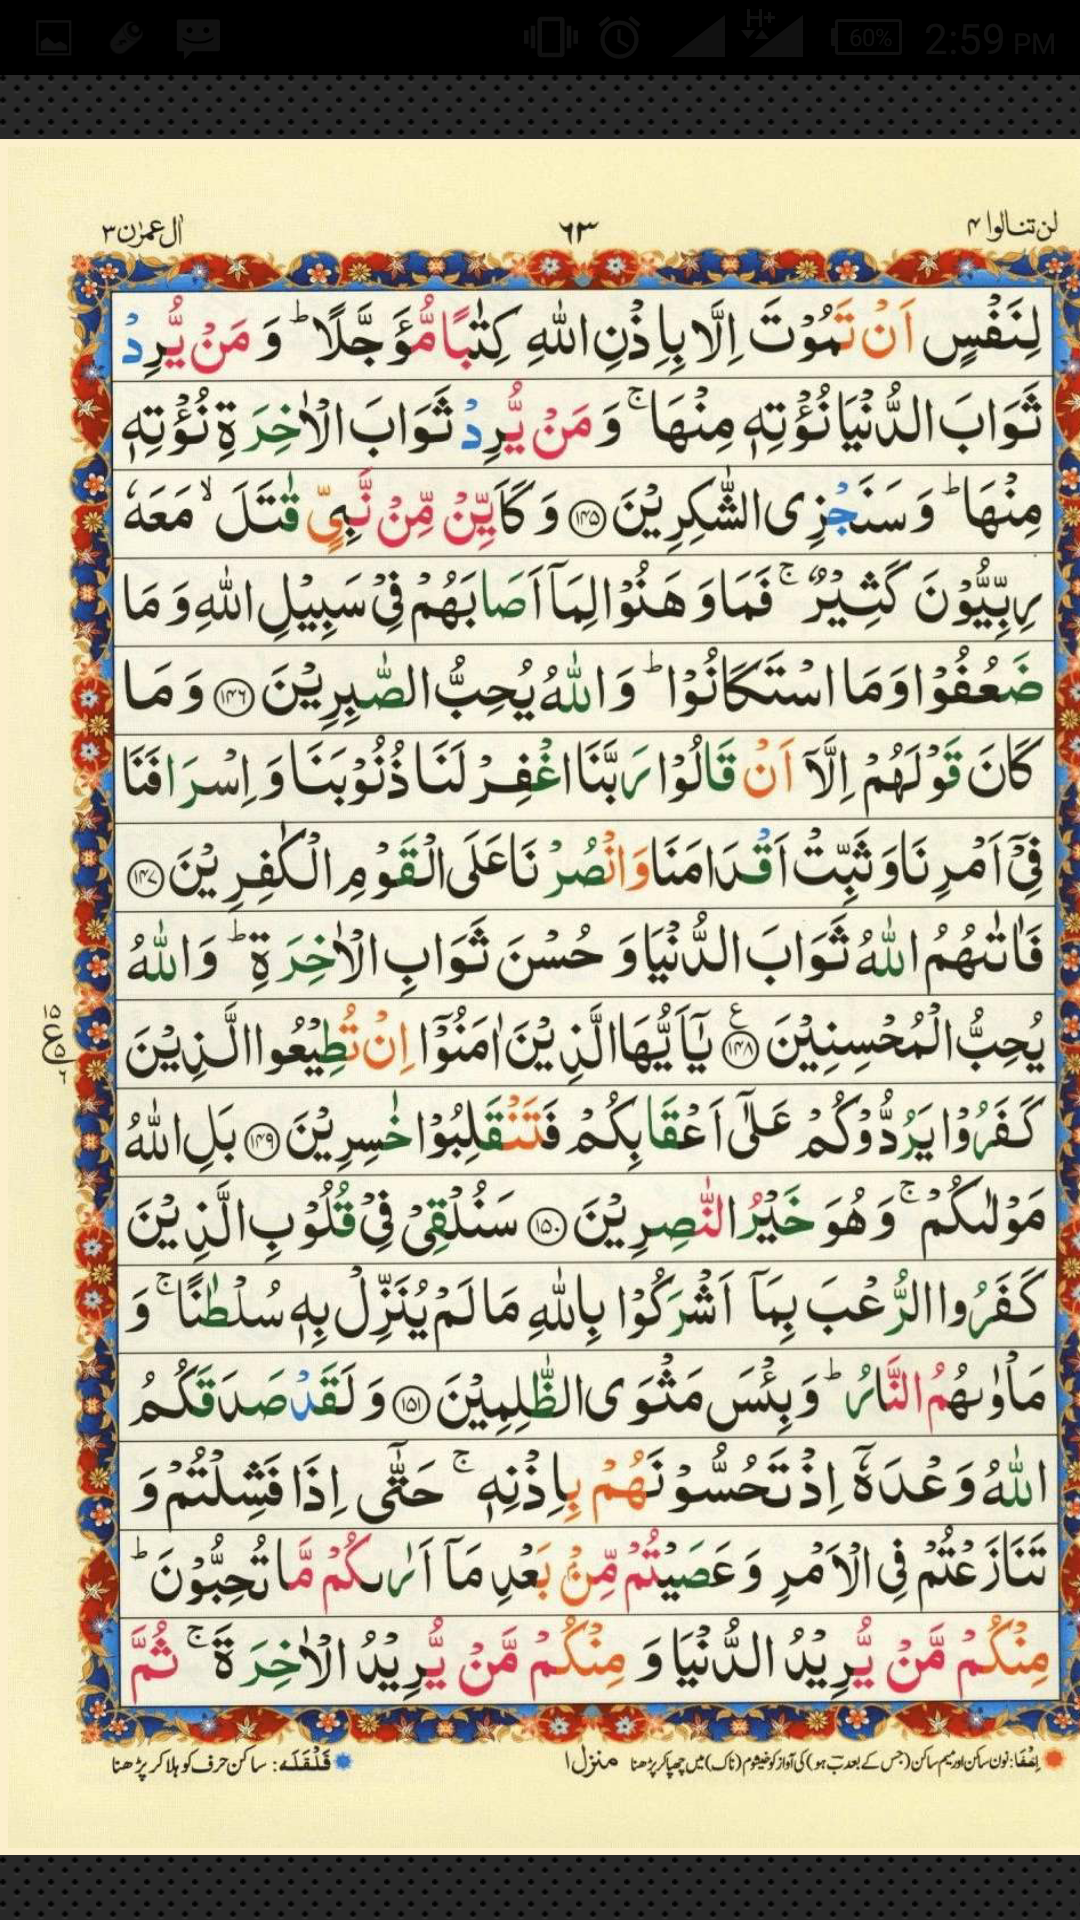 2:59 PM
H+
60%
لن تنالوا ۴
۶۳
اٰل عمرٰن ۳
لِنَفْسٍ اَنْ تَمُوْتَ اِلَّا بِاِذْنِ اللّٰهِ كِتٰبًا مُّؤَجَّلًا ؕ وَ مَنْ يُّرِدْ
ثَوَابَ الدُّنْيَا نُؤْتِهٖ مِنْهَا ۚ وَ مَنْ يُّرِدْ ثَوَابَ الْاٰخِرَةِ نُؤْتِهٖ
مِنْهَا ؕ وَ سَنَجْزِى الشّٰكِرِيْنَ ۝۱۴۵ وَ كَاَيِّنْ مِّنْ نَّبِىٍّ قٰتَلَ ۙ مَعَهٗ
رِبِّيُّوْنَ كَثِيْرٌ ۚ فَمَا وَهَنُوْا لِمَاۤ اَصَابَهُمْ فِىْ سَبِيْلِ اللّٰهِ وَ مَا
ضَعُفُوْا وَ مَا اسْتَكَانُوْا ؕ وَ اللّٰهُ يُحِبُّ الصّٰبِرِيْنَ ۝۱۴۶ وَ مَا
كَانَ قَوْلَهُمْ اِلَّاۤ اَنْ قَالُوْا رَبَّنَا اغْفِرْ لَنَا ذُنُوْبَنَا وَ اِسْرَافَنَا
فِىْۤ اَمْرِنَا وَ ثَبِّتْ اَقْدَامَنَا وَانْصُرْنَا عَلَى الْقَوْمِ الْكٰفِرِيْنَ ۝۱۴۷
فَاٰتٰىهُمُ اللّٰهُ ثَوَابَ الدُّنْيَا وَ حُسْنَ ثَوَابِ الْاٰخِرَةِ ؕ وَ اللّٰهُ
يُحِبُّ الْمُحْسِنِيْنَ ۝۱۴۸ ع يٰۤاَيُّهَا الَّذِيْنَ اٰمَنُوْۤا اِنْ تُطِيْعُوا الَّذِيْنَ
۱۵ ع ۵ ۶
كَفَرُوْا يَرُدُّوْكُمْ عَلٰۤى اَعْقَابِكُمْ فَتَنْقَلِبُوْا خٰسِرِيْنَ ۝۱۴۹ بَلِ اللّٰهُ
مَوْلٰىكُمْ ۚ وَ هُوَ خَيْرُ النّٰصِرِيْنَ ۝۱۵۰ سَنُلْقِىْ فِىْ قُلُوْبِ الَّذِيْنَ
كَفَرُوا الرُّعْبَ بِمَاۤ اَشْرَكُوْا بِاللّٰهِ مَا لَمْ يُنَزِّلْ بِهٖ سُلْطٰنًا ۚ وَ
مَاْوٰىهُمُ النَّارُ ؕ وَ بِئْسَ مَثْوَى الظّٰلِمِيْنَ ۝۱۵۱ وَ لَقَدْ صَدَقَكُمُ
اللّٰهُ وَعْدَهٗۤ اِذْ تَحُسُّوْنَهُمْ بِاِذْنِهٖ ۚ حَتّٰۤى اِذَا فَشِلْتُمْ وَ
تَنَازَعْتُمْ فِى الْاَمْرِ وَ عَصَيْتُمْ مِّنْۢ بَعْدِ مَاۤ اَرٰىكُمْ مَّا تُحِبُّوْنَ ؕ
مِنْكُمْ مَّنْ يُّرِيْدُ الدُّنْيَا وَ مِنْكُمْ مَّنْ يُّرِيْدُ الْاٰخِرَةَ ۚ ثُمَّ
اِخْفَا: نون ساکن اور میم ساکن (جس کے بعد ب ہو) کی آواز کو خیشوم (ناک) میں چھپا کر پڑھنا
منزل ۱
قَلْقَلَه: ساکن حرف کو ہلا کر پڑھنا